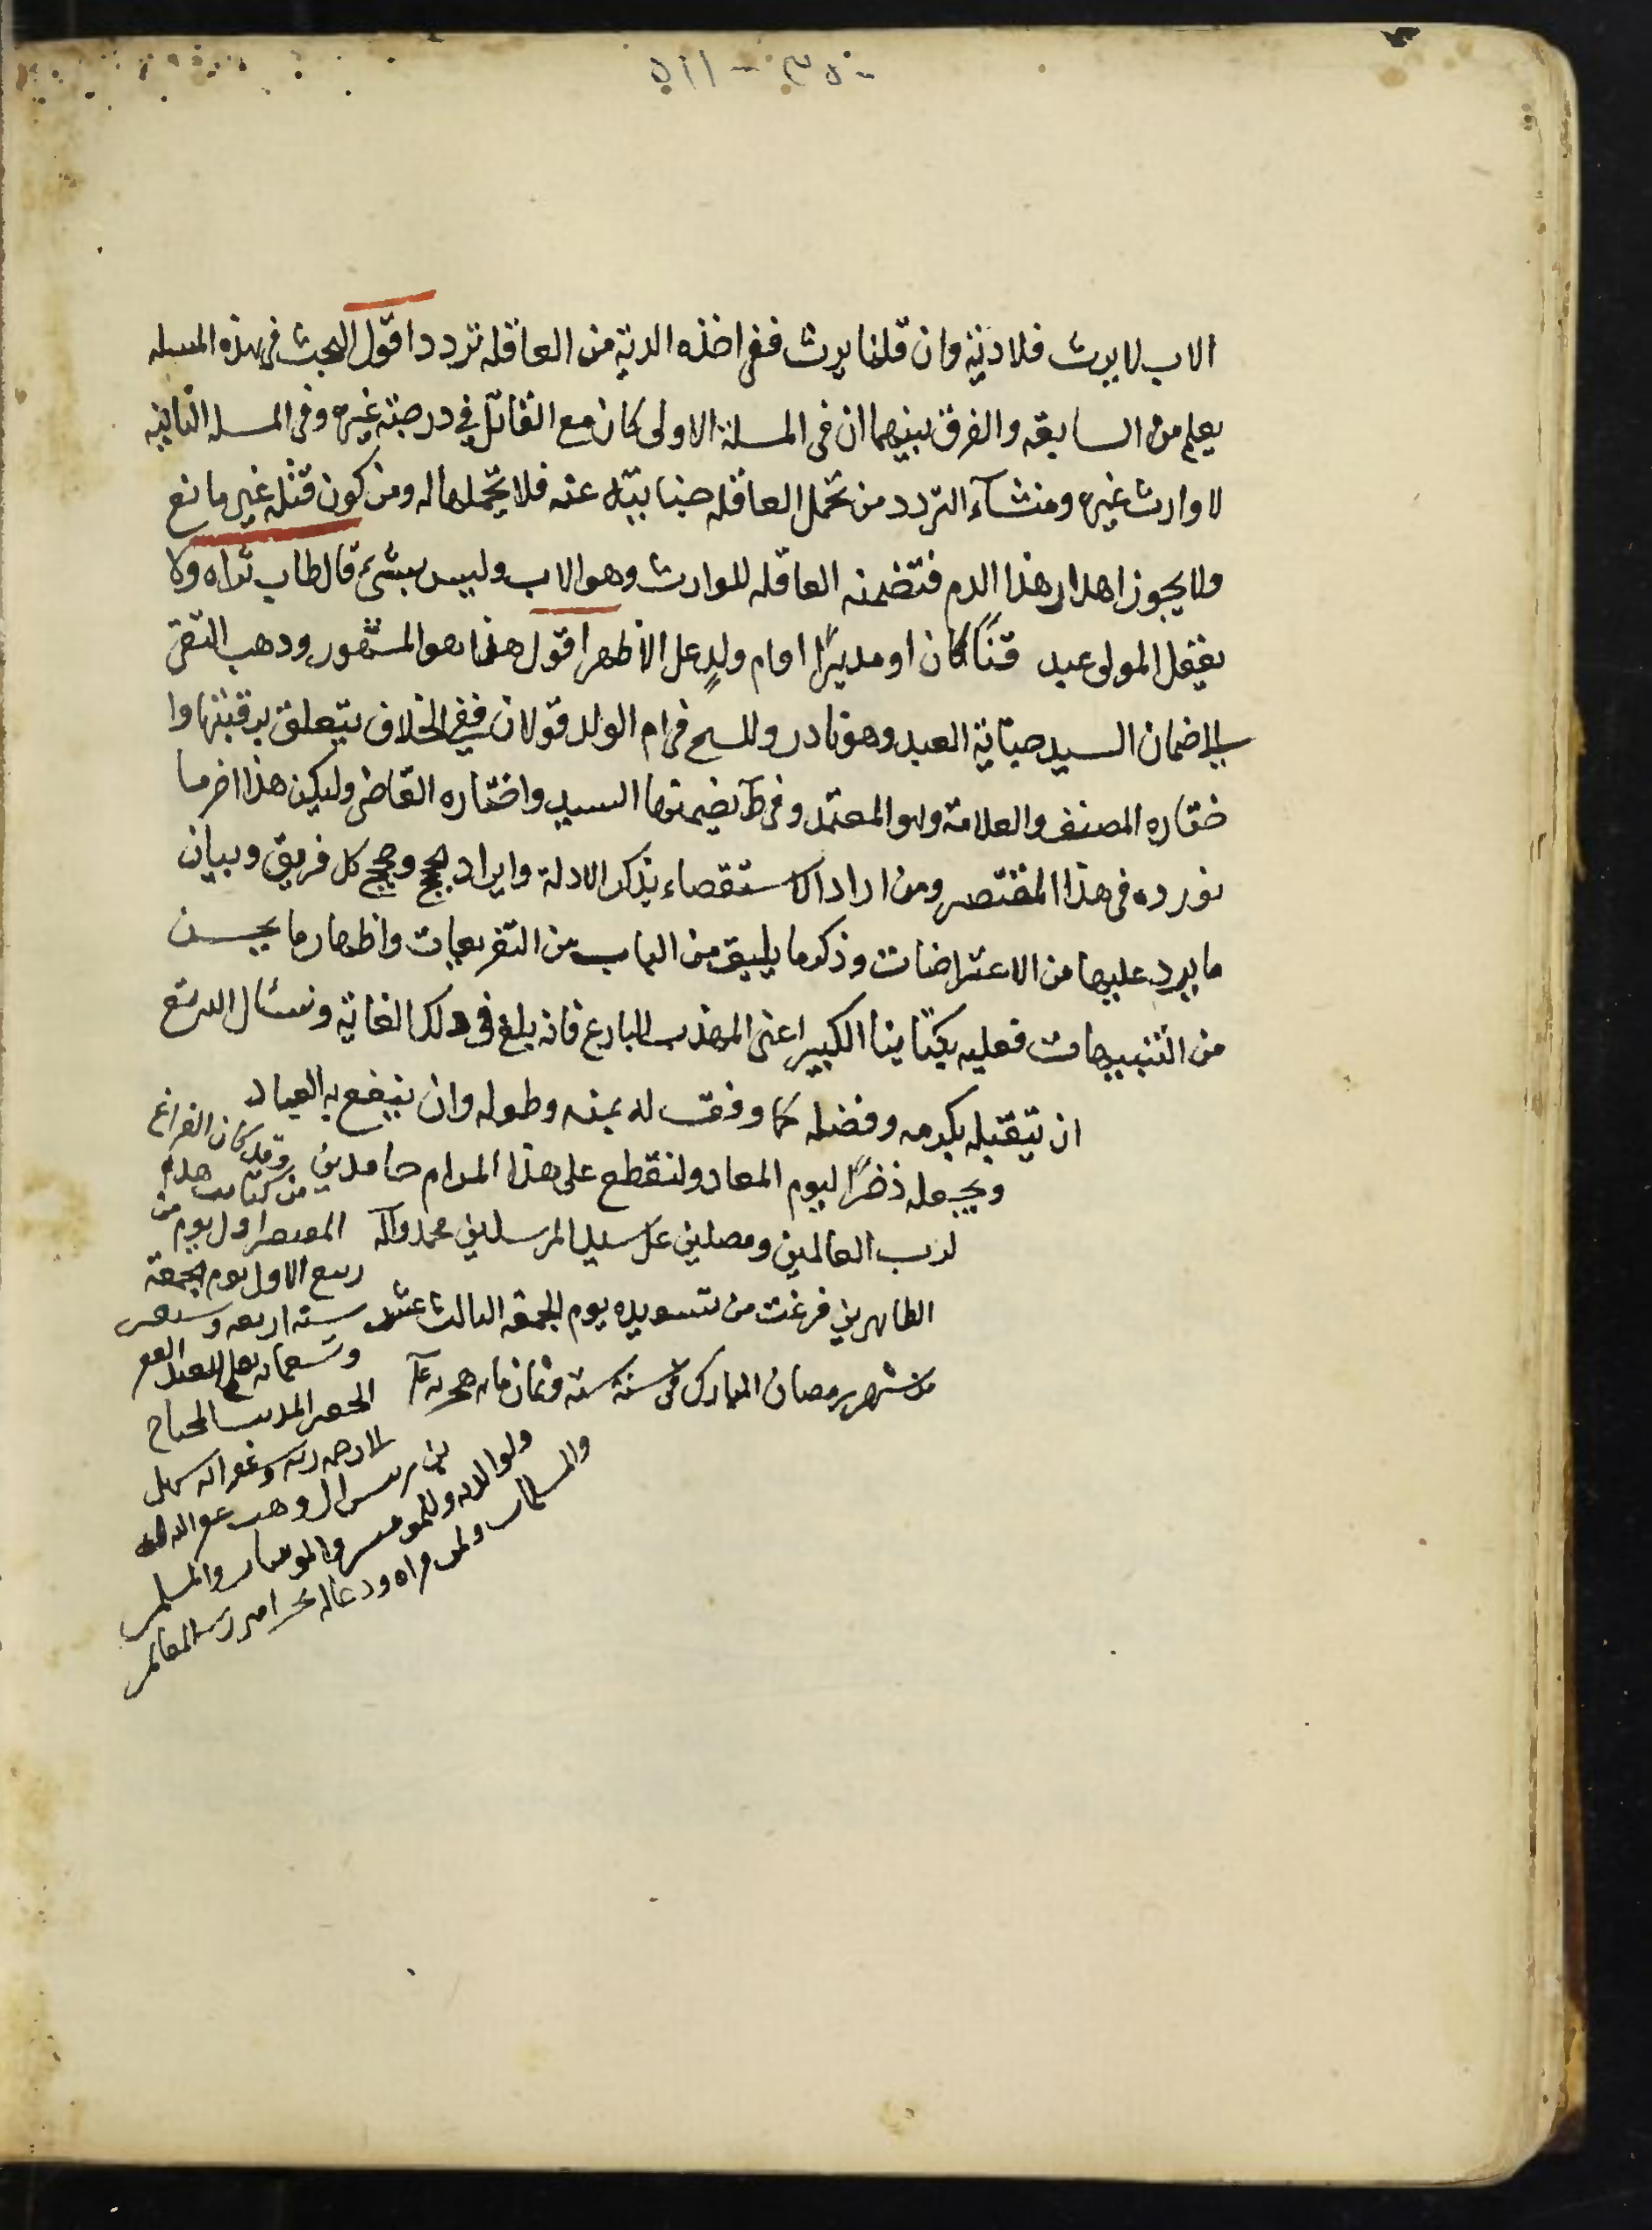 الاب لا يرث فلا دية وان قلنا يرث ففي اخذه الدية من العاقله تردد اقول البحث في هذه المسله
يعلم من السابقه والفرق بينهما ان في المسلة الاولى كان مع القاتل في درجته غيره وفي المسله الثانيه
لا وارث غيره ومنشآء التردد من تحمل العاقله جنايته عنه فلا يتحملها له ومن كون قتله غير مانع
ولا يجوز اهدار هذا الدم فتضمنه العاقله للوارث وهو الاب وليس بشئ قال طاب ثراه ولا
يعقل المولى عبد قنًا كان او مدبرًا او ام ولدٍ على الاظهر اقول هذا هو المشهور ودهب التقي
الى ضمان السيد جناية العبد وهو نادر وللسح في ام الولد قولان ففي الخلاف يتعلق برقبتها وا
ختاره المصنف والعلامة وهو المعتمد وفي ط يضمنها السيد واختاره القاضي وليكن هذا اخر ما
نورده في هذا المختصر ومن اراد الاستقصاء بذكر الادلة وايراد حجج كل فريق وبيان
ما يرد عليها من الاعتراضات وذكر ما يليق من الباب من التفريعات واظهار ما يحسن
من التنبيهات فعليه بكتابنا الكبير اعنى المهذب البارع فانه بلغ في ذلك الغاية ونسئال الله تع
ان يتقبله بكرمه وفضله كما وفق له بمنه وطوله وان ينفع به العباد
ويجعله ذخرًا ليوم المعاد ولنقطع على هذا المرام حامدين
لرب العالمين ومصلين على سيد المرسلين محمد وآله
الطاهرين فرغت من تسويده يوم الجمعه الثالث عشر
من شهر رمضان المبارك في سنة سته وثمان مايه هجريه
وقد كان الفراغ
من كتابت هذه
المختصر اول يوم من
ربيع الاول يوم الجمعة
سنة اربعه وسبعين
وتسعمايه على يد العبد الفقير
الحقير المذنب المحتاج
لا رحمه ربه وغفرانه
ولوالديه وللمومنين والمومنات والمسلمين
والمسلمات ولمن قراه ودعا له بخير امين رب العالمين